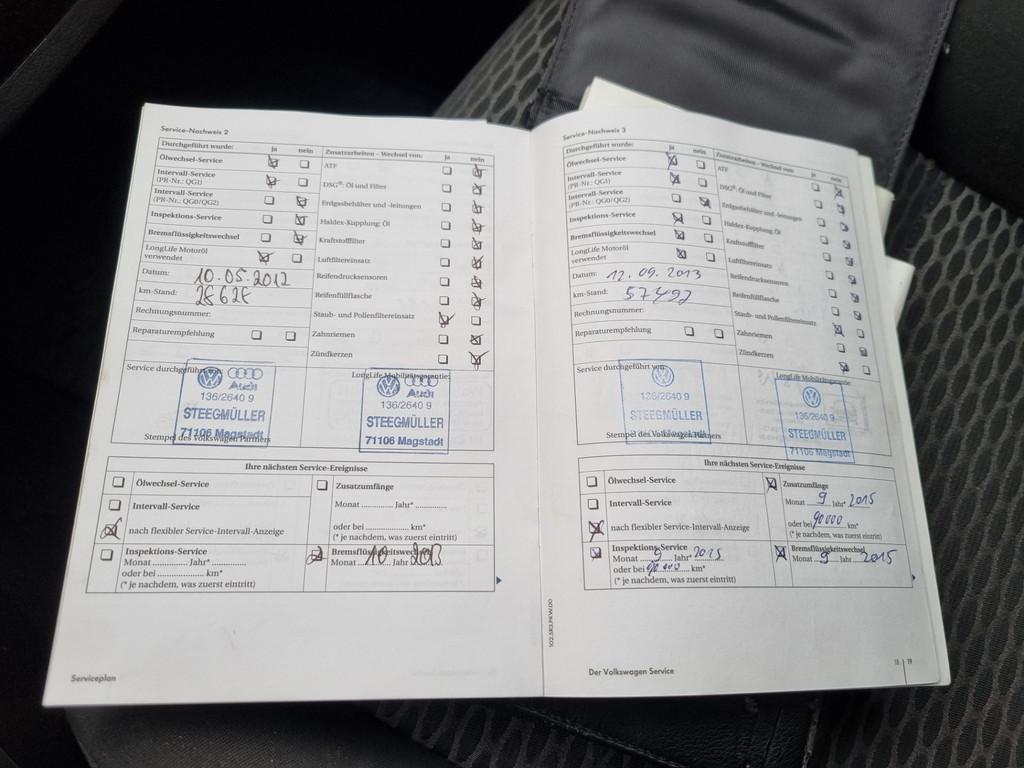 Service-Nachweis 2
Durchgeführt wurde: ja nein
Ölwechsel-Service
Intervall-Service
(PR-Nr.: QG1)
Intervall-Service
(PR-Nr.: QG0/QG2)
Inspektions-Service
Bremsflüssigkeitswechsel
LongLife Motoröl
verwendet
Datum: 10.05.2012
km-Stand: 28628
Rechnungsnummer:
Reparaturempfehlung
Zusatzarbeiten – Wechsel von: ja nein
ATF
DSG®: Öl und Filter
Erdgasbehälter und -leitungen
Haldex-Kupplung: Öl
Kraftstofffilter
Luftfiltereinsatz
Reifendrucksensoren
Reifenfüllflasche
Staub- und Pollenfiltereinsatz
Zahnriemen
Zündkerzen
Service durchgeführt von:
Audi
136/2640 9
STEEGMÜLLER
71106 Magstadt
Stempel des Volkswagen Partners
LongLife Mobilitätsgarantie:
Audi
136/2640 9
STEEGMÜLLER
71106 Magstadt
Ihre nächsten Service-Ereignisse
Ölwechsel-Service
Intervall-Service
nach flexibler Service-Intervall-Anzeige
Inspektions-Service
Monat ........... Jahr* ...............
oder bei .................... km*
(* je nachdem, was zuerst eintritt)
Zusatzumfänge
Monat ........... Jahr* ..............
oder bei .................... km*
(* je nachdem, was zuerst eintritt)
Bremsflüssigkeitswechsel
Monat 10 Jahr 2013
Serviceplan
Service-Nachweis 3
Durchgeführt wurde: ja nein
Ölwechsel-Service
Intervall-Service
(PR-Nr.: QG1)
Intervall-Service
(PR-Nr.: QG0/QG2)
Inspektions-Service
Bremsflüssigkeitswechsel
LongLife Motoröl
verwendet
Datum: 12.09.2013
km-Stand: 57492
Rechnungsnummer:
Reparaturempfehlung
Zusatzarbeiten – Wechsel von: ja nein
ATF
DSG®: Öl und Filter
Erdgasbehälter und -leitungen
Haldex-Kupplung: Öl
Kraftstofffilter
Luftfiltereinsatz
Reifendrucksensoren
Reifenfüllflasche
Staub- und Pollenfiltereinsatz
Zahnriemen
Zündkerzen
Service durchgeführt von:
136/2640 9
STEEGMÜLLER
71106 Magstadt
Stempel des Volkswagen Partners
LongLife Mobilitätsgarantie:
136/2640 9
STEEGMÜLLER
71106 Magstadt
Ihre nächsten Service-Ereignisse
Ölwechsel-Service
Intervall-Service
nach flexibler Service-Intervall-Anzeige
Inspektions-Service
Monat 9 Jahr* 2015
oder bei 90 000 km*
(* je nachdem, was zuerst eintritt)
Zusatzumfänge
Monat 9 Jahr* 2015
oder bei 90000 km*
(* je nachdem, was zuerst eintritt)
Bremsflüssigkeitswechsel
Monat 9 Jahr 2015
Der Volkswagen Service
18 | 19